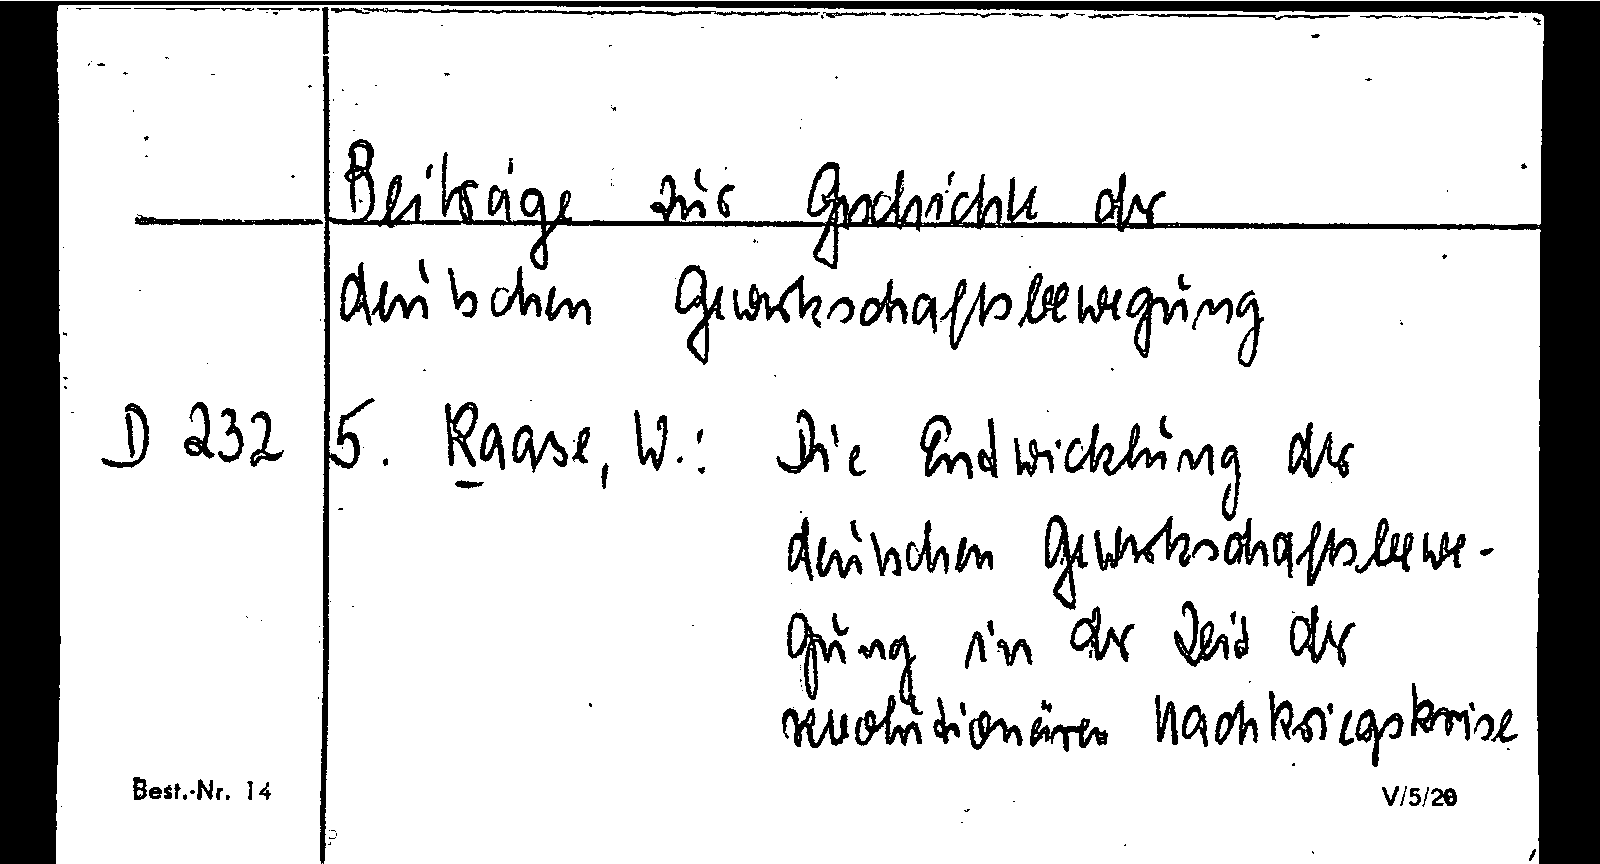 Beiträge zur Geschichte der
deutschen Gewerkschaftsbewegung
D 232 5. Raase, W.: Die Entwicklung der
deutschen Gewerkschaftsbewe-
gung in der Zeit der
revolutionären Nachkriegskrise
Best.-Nr. 14 V/5/28